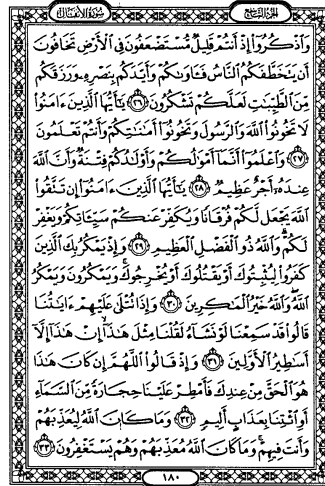 الجزء التاسع
سورة الأنفال
وَاذْكُرُوا إِذْ أَنْتُمْ قَلِيلٌ مُسْتَضْعَفُونَ فِي الْأَرْضِ تَخَافُونَ
أَنْ يَتَخَطَّفَكُمُ النَّاسُ فَآوَاكُمْ وَأَيَّدَكُمْ بِنَصْرِهِ وَرَزَقَكُمْ
مِنَ الطَّيِّبَاتِ لَعَلَّكُمْ تَشْكُرُونَ ٢٦ يَا أَيُّهَا الَّذِينَ آمَنُوا
لَا تَخُونُوا اللَّهَ وَالرَّسُولَ وَتَخُونُوا أَمَانَاتِكُمْ وَأَنْتُمْ تَعْلَمُونَ
٢٧ وَاعْلَمُوا أَنَّمَا أَمْوَالُكُمْ وَأَوْلَادُكُمْ فِتْنَةٌ وَأَنَّ اللَّهَ
عِنْدَهُ أَجْرٌ عَظِيمٌ ٢٨ يَا أَيُّهَا الَّذِينَ آمَنُوا إِنْ تَتَّقُوا
اللَّهَ يَجْعَلْ لَكُمْ فُرْقَانًا وَيُكَفِّرْ عَنْكُمْ سَيِّئَاتِكُمْ وَيَغْفِرْ
لَكُمْ وَاللَّهُ ذُو الْفَضْلِ الْعَظِيمِ ٢٩ وَإِذْ يَمْكُرُ بِكَ الَّذِينَ
كَفَرُوا لِيُثْبِتُوكَ أَوْ يَقْتُلُوكَ أَوْ يُخْرِجُوكَ وَيَمْكُرُونَ وَيَمْكُرُ
اللَّهُ وَاللَّهُ خَيْرُ الْمَاكِرِينَ ٣٠ وَإِذَا تُتْلَى عَلَيْهِمْ آيَاتُنَا
قَالُوا قَدْ سَمِعْنَا لَوْ نَشَاءُ لَقُلْنَا مِثْلَ هَذَا إِنْ هَذَا إِلَّا
أَسَاطِيرُ الْأَوَّلِينَ ٣١ وَإِذْ قَالُوا اللَّهُمَّ إِنْ كَانَ هَذَا
هُوَ الْحَقَّ مِنْ عِنْدِكَ فَأَمْطِرْ عَلَيْنَا حِجَارَةً مِنَ السَّمَاءِ
أَوِ ائْتِنَا بِعَذَابٍ أَلِيمٍ ٣٢ وَمَا كَانَ اللَّهُ لِيُعَذِّبَهُمْ
وَأَنْتَ فِيهِمْ وَمَا كَانَ اللَّهُ مُعَذِّبَهُمْ وَهُمْ يَسْتَغْفِرُونَ ٣٣
١٨٠